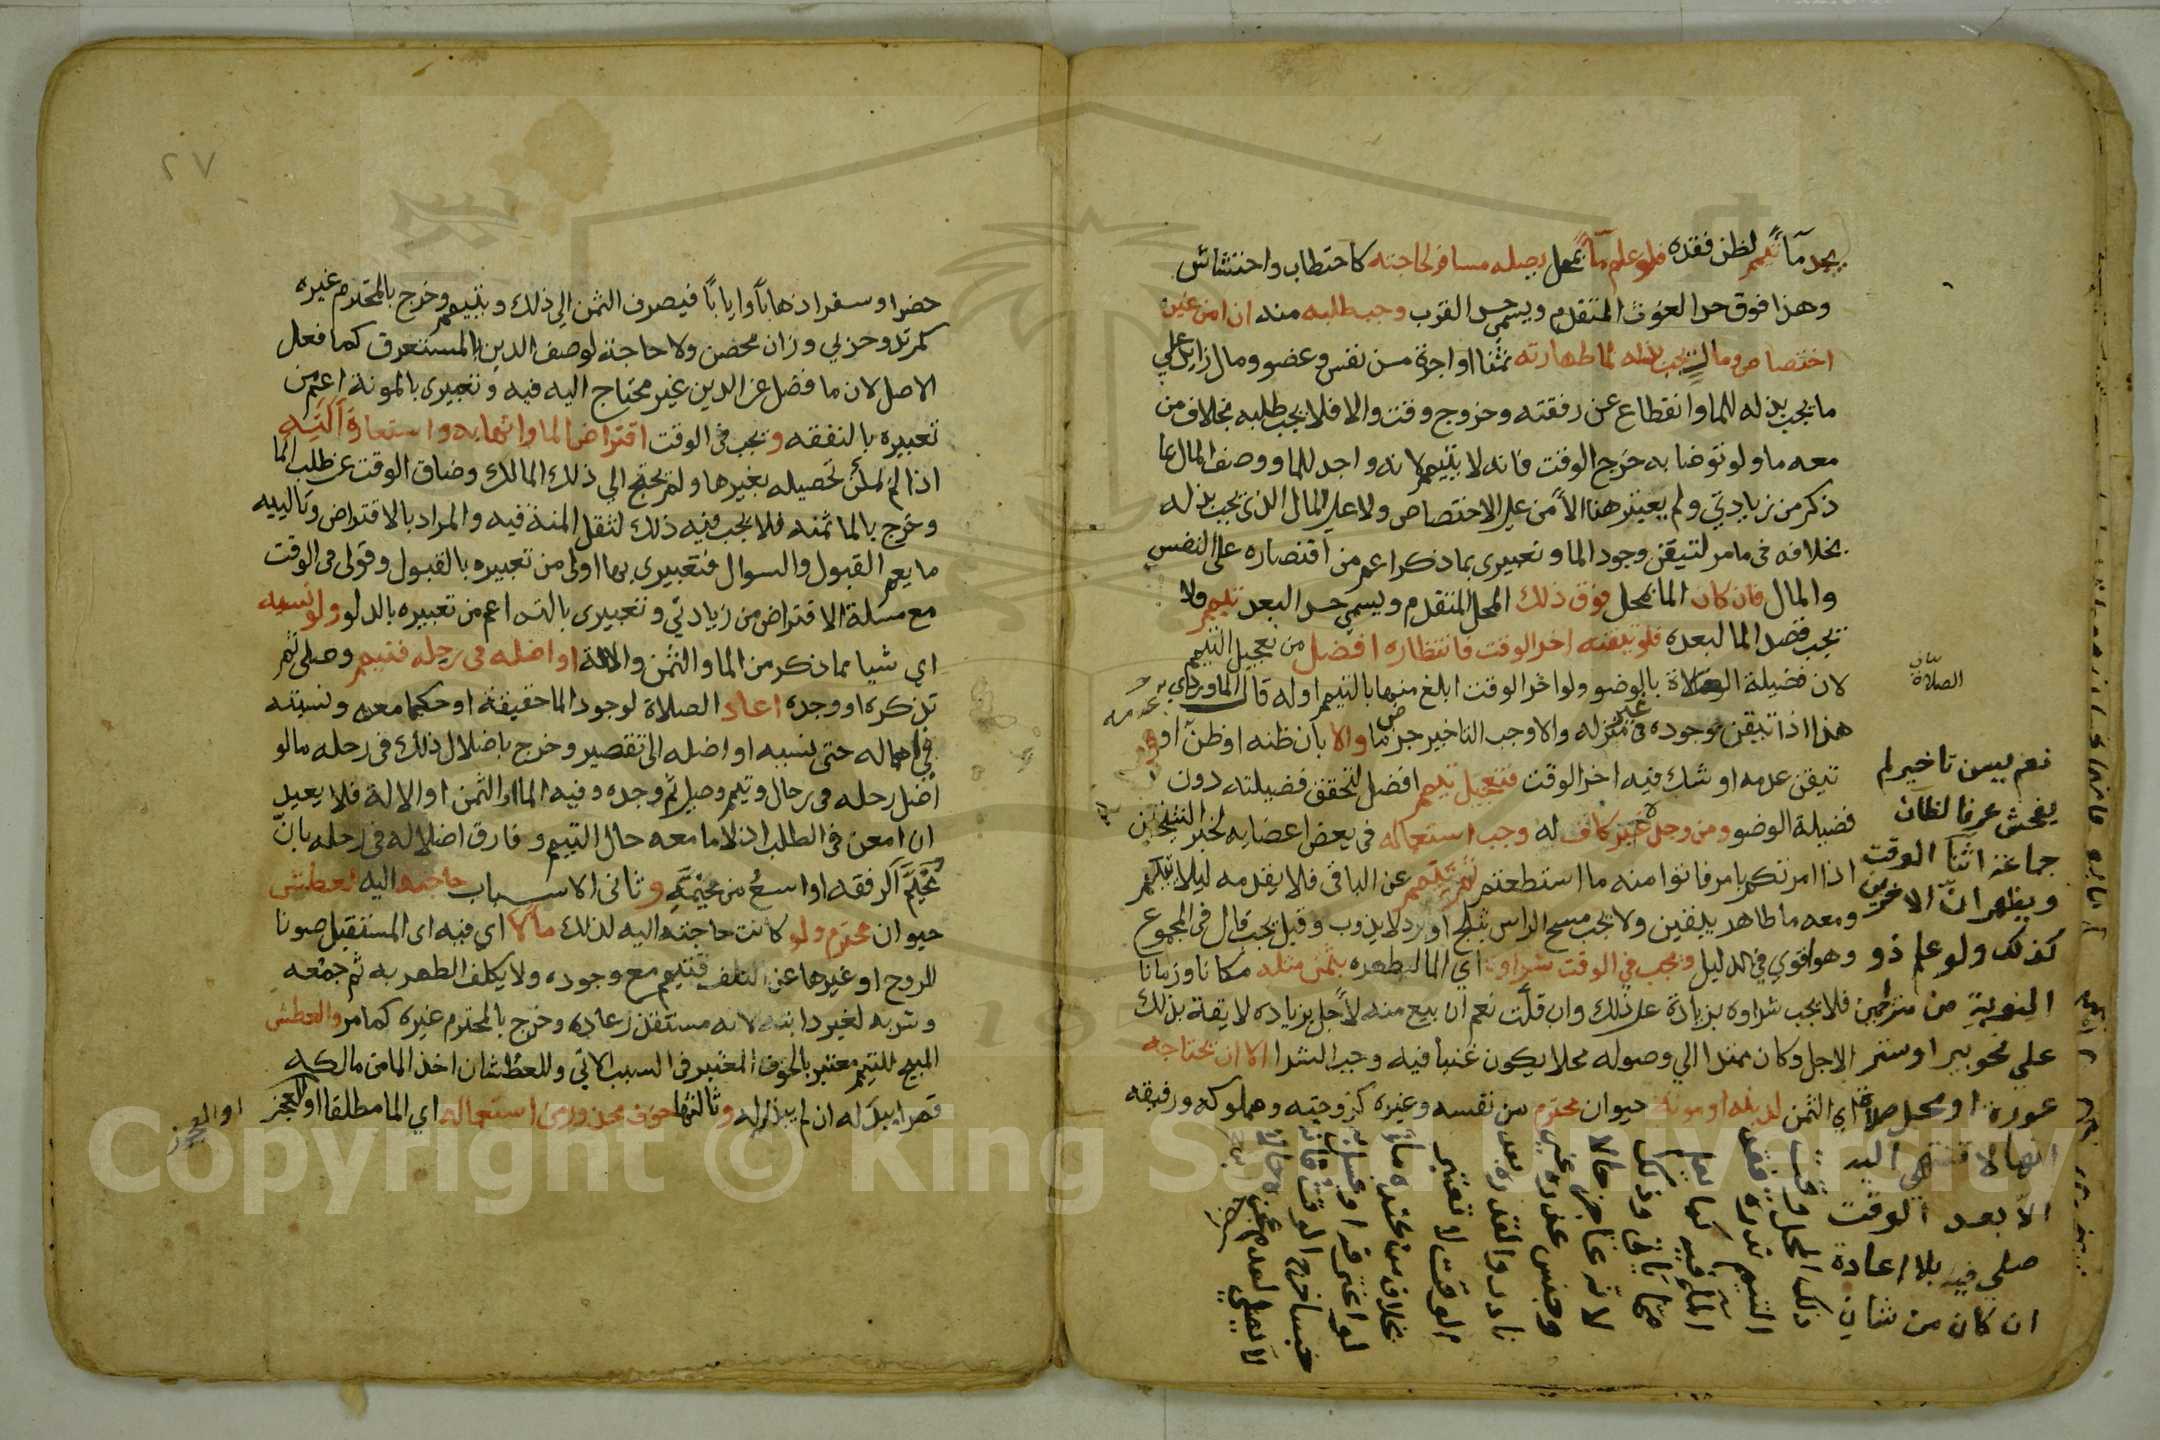 يجد ماً تيمم لظن فقده فلو علم ماً بمحل يصله مسافر لحاجته كاحتطاب واحتشاش
وهذا فوق حد الغوث المتقدم ويسمي حد القرب وجب طلبه منه ان امن غير
اختصاص ومال يجب بذله لما طهارته ثمنا او اجرة من نفس وعضو ومال زايد علي
ما يجب بذله للما وانقطاع عن رفقته وخروج وقت والا فلا يجب طلبه بخلاف من
معه ما ولو توضا به خرج الوقت فانه لا يتيمم لانه واجد للما ووصف المال بما
ذكر من زيادتي ولم يعتبر هنا الامن علي الاختصاص ولا علي المال الذي يجب بذله
بخلافه في ما مر لتيقن وجود الما وتعبيرى بما ذكر اعم من اقتصاره على النفس
والمال فان كان الما بمحل فوق ذلك المحل المتقدم ويسمي حد البعد تيمم ولا
يجب قصد الما لبعده فلو تيقنه اخر الوقت فانتظاره افضل من تعجيل التيمم
لان فضيلة الصلاة بالوضو ولو اخر الوقت ابلغ منها بالتيمم اوله قال الماوردي
هذا اذا تيقن وجوده في غير منزله والا وجب التاخير جزما والا بان ظنه او ظن او
تيقن عدمه او شك فيه اخر الوقت فتعجيل تيمم افضل لتحقق فضيلته دون
فضيلة الوضو ومن وجده غير كاف له وجب استعماله في بعض اعضايه لخبر الشيخين
اذا امرتكم بامر فاتوا منه ما استطعتم ثم تيمم عن الباقي فلا يقدمه ليلا يتيمم
ومعه ما طاهر بيقين ولا يجب مسح الراس بثلج او برد لا يذوب وقيل يجب قال في المجموع
وهو اقوي في الدليل ويجب في الوقت شراوه اي الما لطهره بثمن مثله مكانا وزمانا
فلا يجب شراوه بزيادة على ذلك وان قلت نعم ان بيع منه لاجل بزياده لايقة بذلك
الاجل وكان ممتدا الي وصوله محلا يكون غنيا فيه وجب الشرا الا ان يحتاجه
اي الثمن لدينه او مونة حيوان محترم من نفسه وغيره كزوجته ومملوكه ورفيقه
بيان
الصلاة
نعم يسن تاخير لم
يفحش عرفا لظان
جماعة اثنا الوقت
ويظهر ان الاخرين
كذلك ولو علم ذو
النوبة من متزاحمين
على نحو بير او ستر
عورة او محل صلاة
انها لا تنتهي اليه
الا بعد الوقت
صلي فيه بلا اعادة
ان كان من شان
ذلك المحل وقت
التيمم ندرة فقد
الماء فيه كما يعلم
مما ياتي وذلك
لانه عاجز حالا
وجنس عذره غير
نادر والقدرة بعد
الوقت لا تعتبر
بخلاف من عنده ما
لو اغترف او غسل
خبثا خرج الوقت فانه
لا يصلي لعدم عجزه حالا
٢٧
حضرا وسفرا ذهاباً واياباً فيصرف الثمن الي ذلك ويتيمم وخرج بالمحترم غيره
كمرتد وحربي وزان محصن ولا حاجة لوصف الدين بالمستغرق كما فعل
الاصل لان ما فضل عن الدين غير محتاج اليه فيه وتعبيرى بالمونة اعم من
تعبيره بالنفقه ويجب في الوقت اقتراض الما واتهابه واستعارة آلته
اذا لم يمكن تحصيله بغيرها ولم يحتج الي ذلك المالك وضاق الوقت عن طلب الما
وخرج بالما ثمنه فلا يجب فيه ذلك لثقل المنة فيه والمراد بالاقتراض وتالييه
ما يعم القبول والسوال فتعبيري بها اولى من تعبيره بالقبول وقولى في الوقت
مع مسلة الاقتراض من زيادتي وتعبيرى بالته اعم من تعبيره بالدلو ولو نسيه
اي شيا مما ذكر من الما والثمن والالة او اضله في رحله فتيمم وصلى ثم
تذكره او وجده اعاد الصلاة لوجود الما حقيقة او حكما معه ونسبته
في اهماله حتى نسيه او اضله الى تقصير وخرج باضلال ذلك في رحله ما لو
اضل رحله في رحال وتيمم وصلي ثم وجده وفيه الما او الثمن او الالة فلا يعيد
ان امعن في الطلب اذ لا ما معه حال التيمم وفارق اضلاله في رحله بانّ
مخيّم الرفقه اوسع من مخيّمه وثاني الاسباب حاجته اليه لعطش
حيوان محترم ولو كانت حاجته اليه لذلك مآلا اي فيه اى المستقبل صونا
للروح او غيرها عن التلف فتيمم مع وجوده ولا يكلف الطهر به ثم جمعه
وشربه لغير دابته لانه مستقذر عادة وخرج بالمحترم غيره كما مر والعطش
المبيح للتيمم معتبر بالخوف المعتبر في السبب الاتي وللعطشان اخذ الما من مالكه
قهرا ببدله ان لم يبذله وثالثها خوف محذور من استعماله اي الما مطلقا او العجز
او العجز